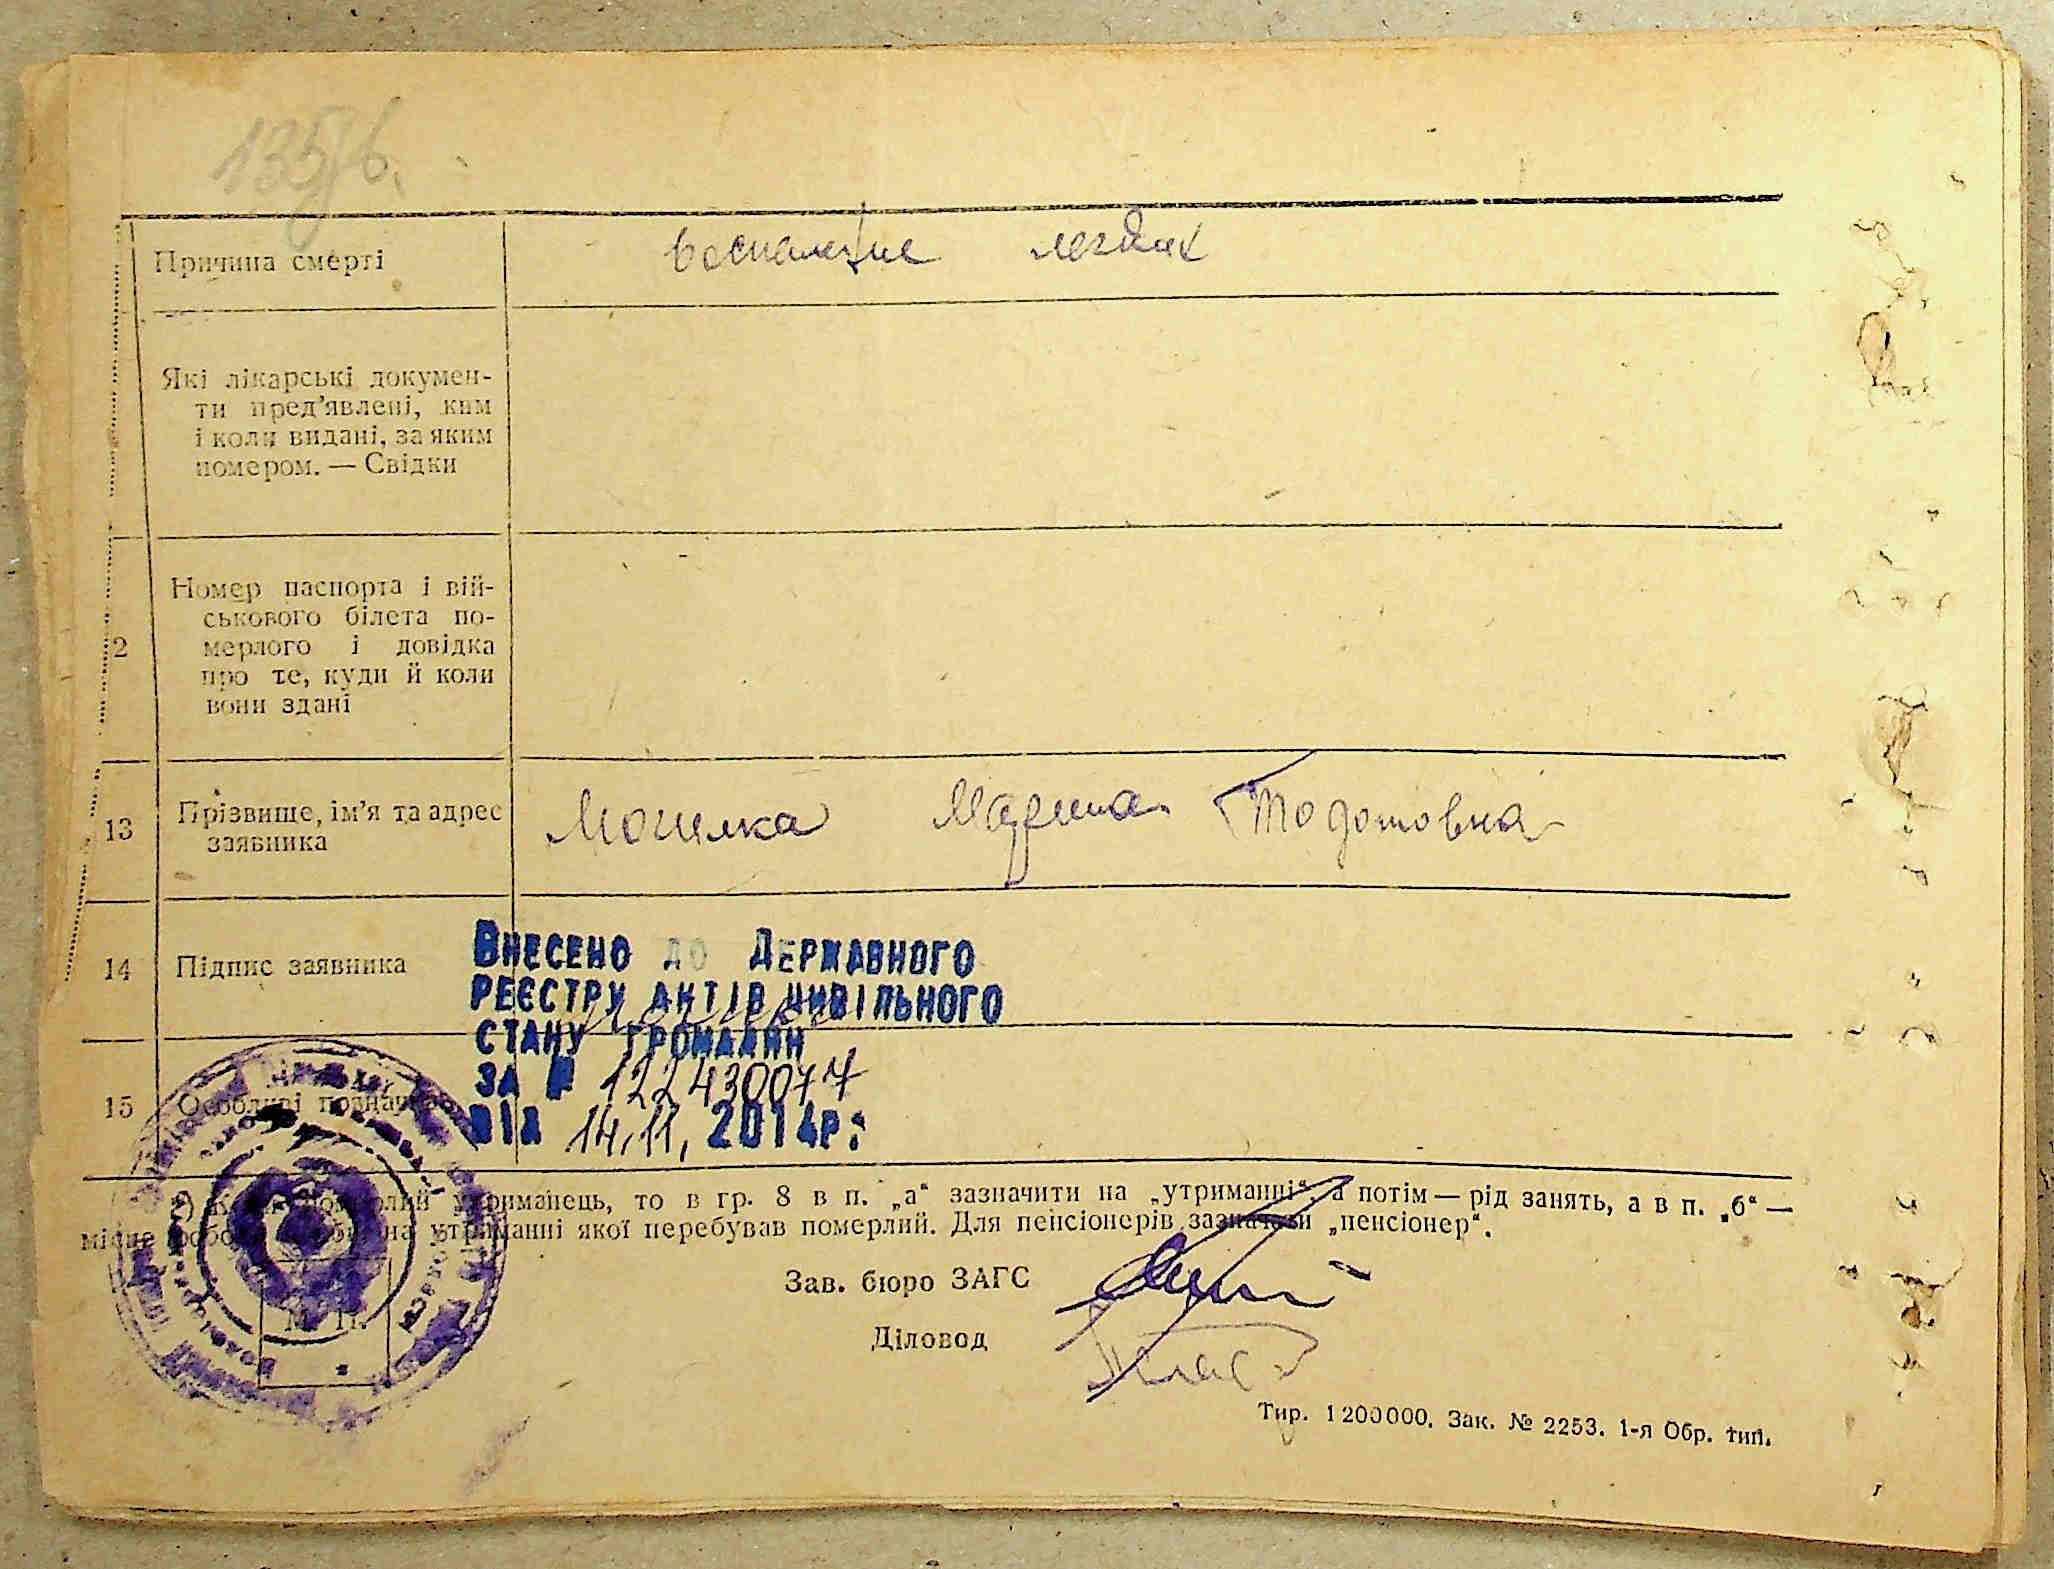 135/б.
Причина смерті
воспаление легких
Які лікарські докумен-
ти пред’явлені, ким
і коли видані, за яким
номером. — Свідки
Номер паспорта і вій-
ськового білета по-
2 мерлого і довідка
про те, куди й коли
вони здані
13 Прізвище, ім’я та адрес
заявника
Могилка Марина Тодотовна
14 Підпис заявника
Внесено до Державного
реєстру актів цивільного
стану громадян
за № 122430077
від 14.11. 2014р.
15 Особливі позначки
утриманець, то в гр. 8 в п. „а“ зазначити на „утриманні“, а потім — рід занять, а в п. „б“ —
місце на утриманні якої перебував померлий. Для пенсіонерів зазначати „пенсіонер“.
Зав. бюро ЗАГС
М. П.
Діловод
Тир. 1200000. Зак. № 2253. 1-я Обр. тип.